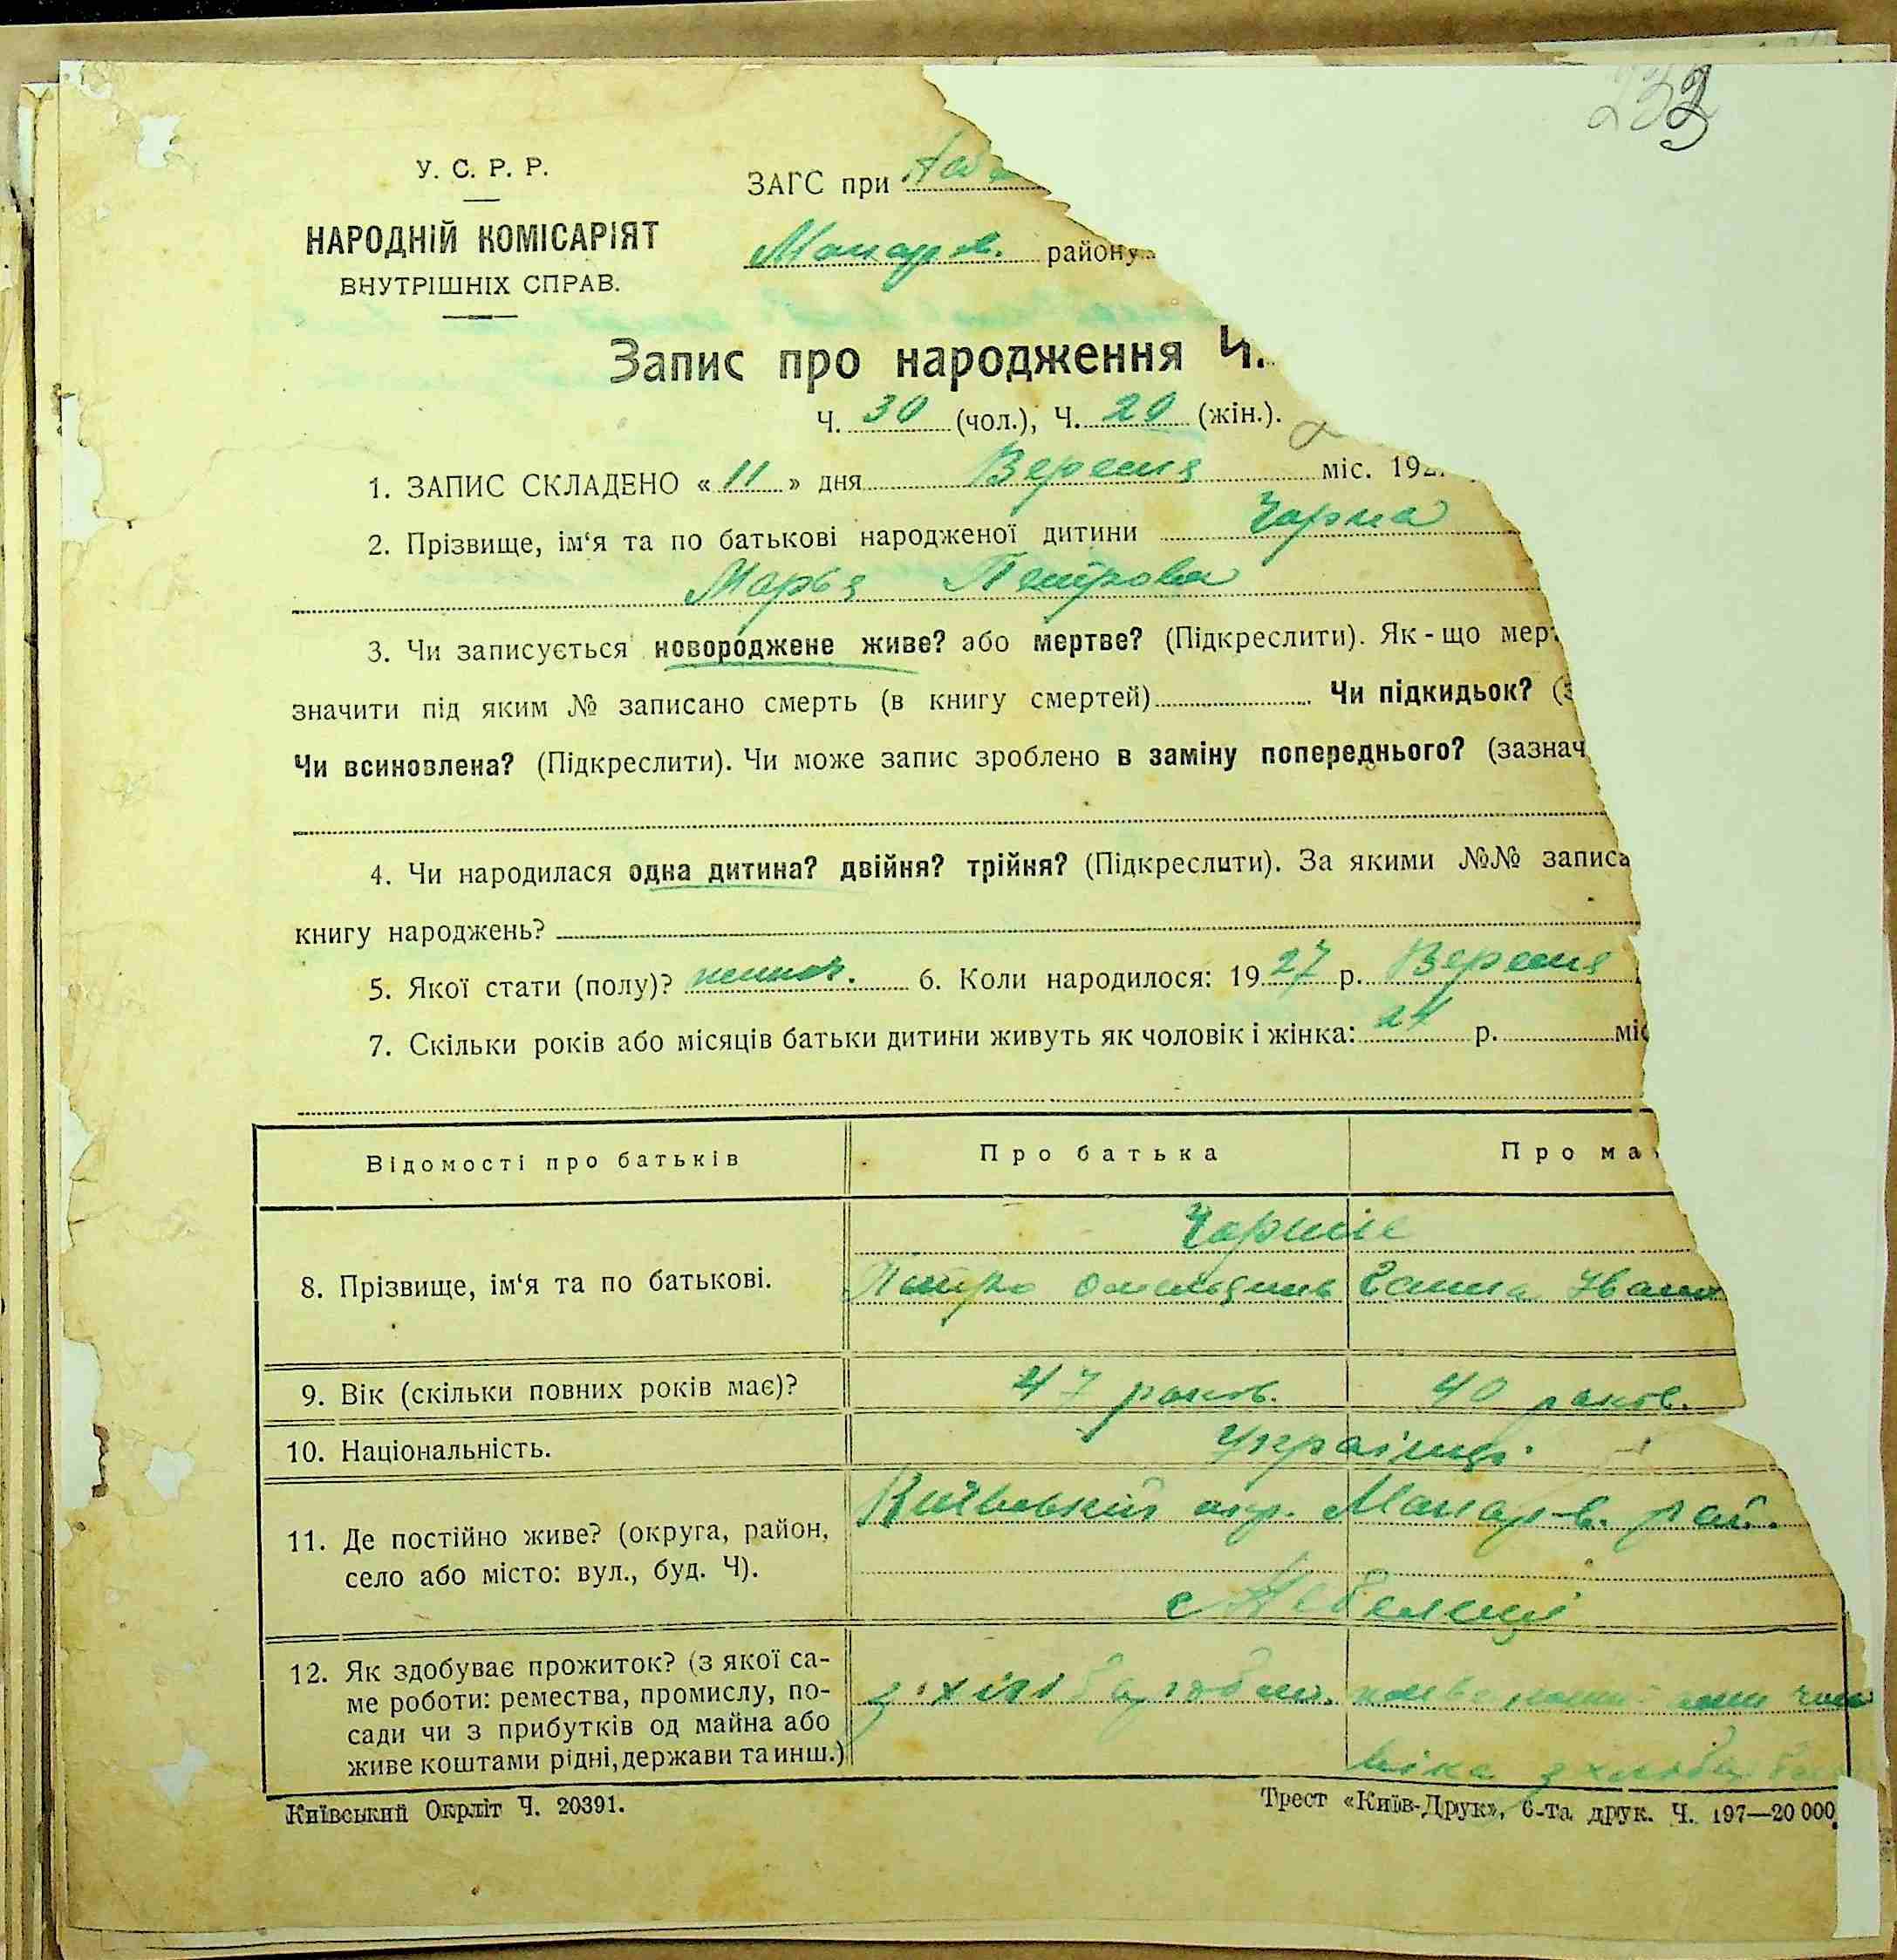 233
У. С. Р. Р.
ЗАГС при
НАРОДНІЙ КОМІСАРІЯТ
Макар.в. району
ВНУТРІШНІХ СПРАВ.
Запис про народження Ч.
Ч. 30 (чол.), Ч. 20 (жін.).
1. ЗАПИС СКЛАДЕНО « 11 » дня Вересня міс. 192
2. Прізвище, ім‘я та по батькові народженої дитини Чорна
Марья Петрова
3. Чи записується новороджене живе? або мертве? (Підкреслити). Як-що мер
значити під яким № записано смерть (в книгу смертей) Чи підкидьок? (з
Чи всиновлена? (Підкреслити). Чи може запис зроблено в заміну попереднього? (зазнач
4. Чи народилася одна дитина? двійня? трійня? (Підкреслити). За якими №№ записа
книгу народжень?
5. Якої стати (полу)? 6. Коли народилося: 1927 р. Вересня
7. Скільки років або місяців батьки дитини живуть як чоловік і жінка: 24 р. міс
Відомості про батьків Про батька Про ма
Чорніє
8. Прізвище, ім‘я та по батькові. Петро Ганна Івано
9. Вік (скільки повних років має)? 47 років. 40 років.
10. Національність. Українці.
11. Де постійно живе? (округа, район, Київський окр. Макар-в. рай.
село або місто: вул., буд. Ч). с Небелиці
12. Як здобуває прожиток? (з якої са-
ме роботи: ремества, промислу, по- з хлібаробст.
сади чи з прибутків од майна або
живе коштами рідні, держави та инш.)
Київський Окрліт Ч. 20391.
Трест «Київ-Друк», 6-та друк. Ч. 197—20 000